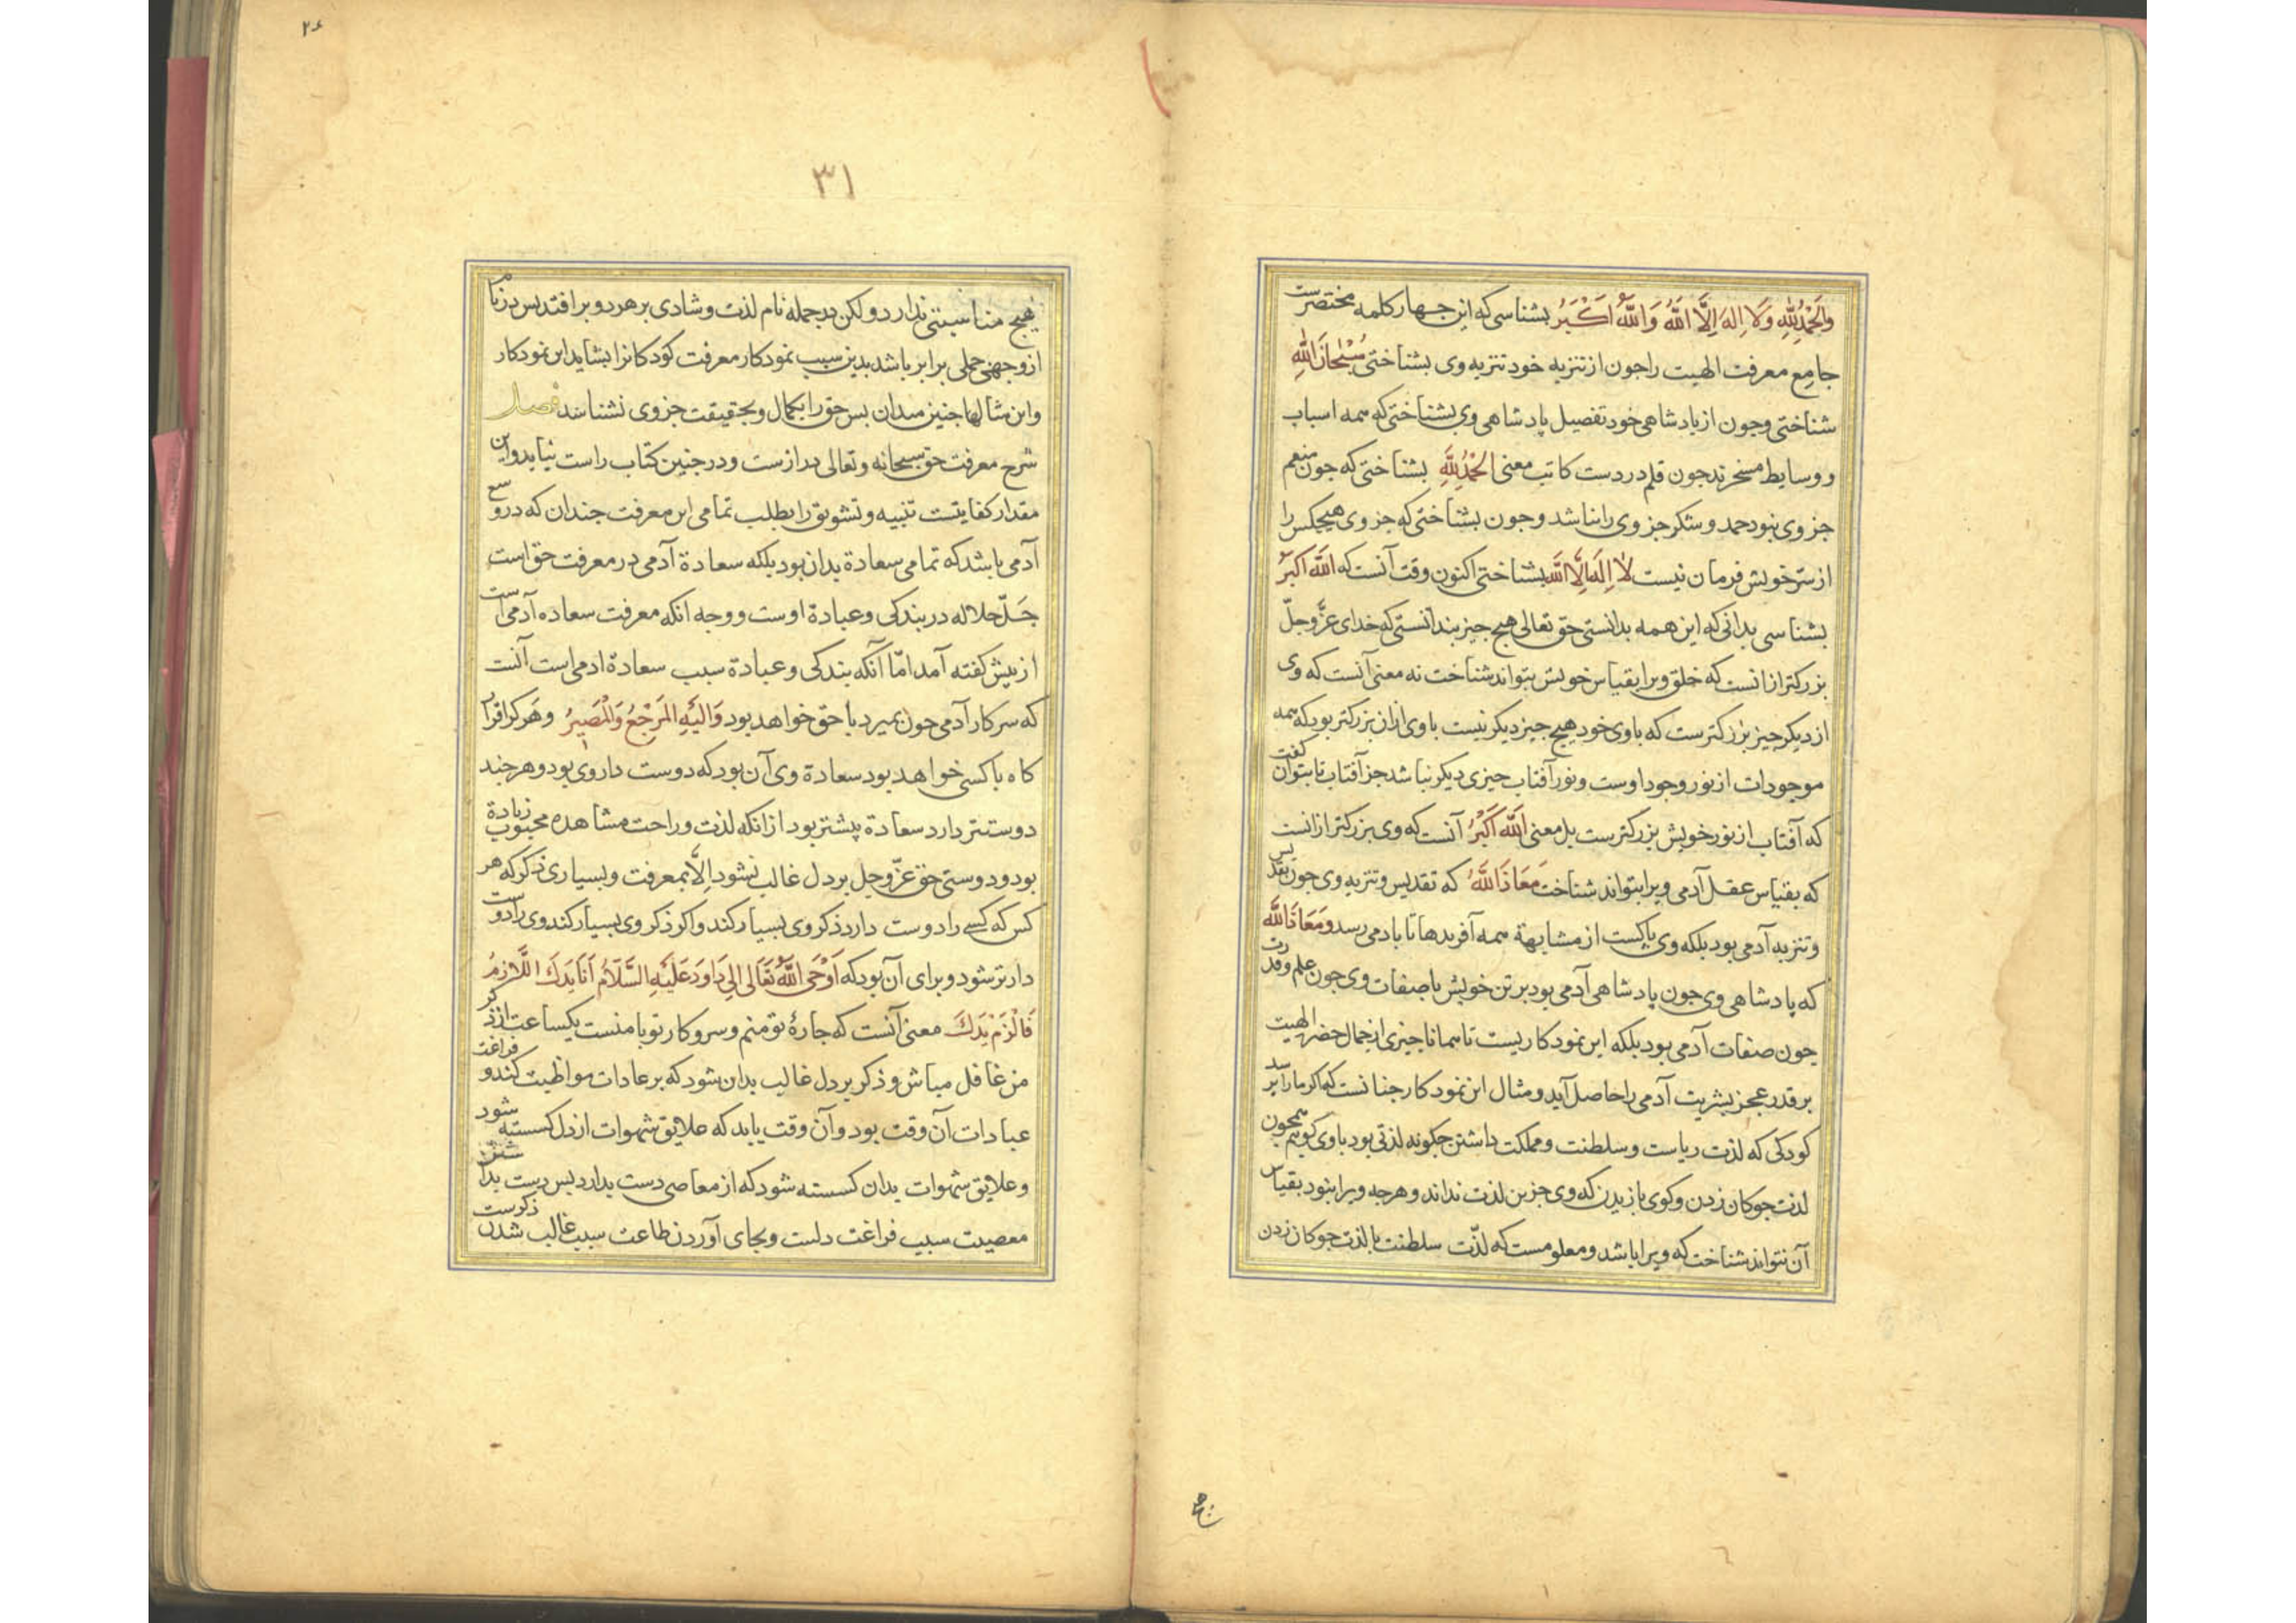 والحمد لله ولا اله الا الله والله اکبر بشناسی که این جهار کلمه مختصرست
جامع معرفت الهیت را جون از تنزیه خود تنزیه وی بشناختی سبحان الله
شناختی و جون از پادشاهی خود تفصیل پادشاهی وی بشناختی که همه اسباب
و وسایط مسخرند جون قلم در دست کاتب معنی الحمد لله بشناختی که جون منعم
جز وی نبود حمد و شکر جز وی را نباشد و جون بشناختی که جز وی هیچکس را
از سر خویش فرمان نیست لا اله الا الله بشناختی اکنون وقت آنست که الله اکبر
بشناسی بدانی که این همه بدانستی حق تعالی هیچ جیز بندانستی که خدای عز و جل
بزرکتر از انست که خلق ویرا بقیاس خویش بتواند شناخت نه معنی آنست که وی
از دیکر جیز بزرکترست که با وی خود هیچ جیز دیکر نیست با وی از ان بزرکتر بود که همه
موجودات از نور وجود اوست و نور آفتاب جیزی دیکر نباشد جز آفتاب تا بتوان کفت
که آفتاب از نور خویش بزرکترست بل معنی الله اکبر آنست که وی بزرکتر از انست
که بقیاس عقل آدمی ویرا بتواند شناخت معاذ الله که تقدیس و تنزیه وی جون تقدیس
و تنزیه آدمی بود بلکه وی پاکست از مشابهة همه آفریدها تا بادمی رسد و معاذ الله
که پادشاهی وی جون پادشاهی آدمی بود بر تن خویش یا صفات وی جون علم و قدرت
جون صفات آدمی بود بلکه این نمودکاریست تا همانا جیزی از جمال حضرت الهیت
بر قدر عجز بشریت آدمی را حاصل آید و مثال این نمودکار جنانست که اکر ما را پرسد
کودکی که لذت ریاست و سلطنت و مملکت داشتن جکونه لذتی بود با وی کوییم همجون
لذت جوکان زدن و کوی بازیدن که وی جز این لذت نداند و هرجه ویرا نبود بقیاس
آن نتواند شناخت که ویرا باشد و معلومست که لذت سلطنت با لذت جوکان زدن
۲۶
۳۱
هیچ مناسبتی ندارد ولکن در جمله نام لذت و شادی بر هر دو بر افتد بس در نام
از وجهی جملی برابر باشد بدین سبب نمودکار معرفت کودکانرا بشاید این نمودکار
و این مثالها جنین میدان بس حق را بکمال و بحقیقت جز وی نشناسد فصل
شرح معرفت حق سبحانه و تعالی درازست و در جنین کتاب راست نیاید و این
مقدار کفایتست تنبیه و تشویق را بطلب تمامی این معرفت جندان که در وسع
آدمی باشد که تمامی سعادة بدان بود بلکه سعادة آدمی در معرفت حق است
جل جلاله در بندکی و عبادة اوست و وجه انکه معرفت سعاده آدمی است
از بیش کفته آمد اما آنکه بندکی و عبادة سبب سعادة ادمی است آنست
که سر کار آدمی جون بمیرد با حق خواهد بود والیه المرجع والمصیر و هر کرا قرار
کاه با کسی خواهد بود سعادة وی آن بود که دوست دار وی بود و هرجند
دوستتر دارد سعادة بیشتر بود از انکه لذت و راحت مشاهده محبوب زیادة
بود و دوستی حق عز و جل بر دل غالب نشود الا بمعرفت و بسیاری ذکر که هر
کس که کسی را دوست دارد ذکر وی بسیار کند و اکر ذکر وی بسیار کند وی را دوست
دارتر شود و برای آن بود که اوحی الله تعالی الی داود علیه السلام انا بدک اللازم
فالزم بدک معنی آنست که جارهٔ تو منم و سر و کار تو با منست یکساعت از ذکر
من غافل مباش و ذکر بر دل غالب بدان شود که بر عادات مواظبت کند و فراغت
عبادات آن وقت بود و آن وقت یابد که علایق شهوات از دل کسسته شود
و علایق شهوات بدان کسسته شود که از معاصی دست بدارد بس دست بداشتن
معصیت سبب فراغت دلست و بجای آوردن طاعت سبب غالب شدن ذکرست